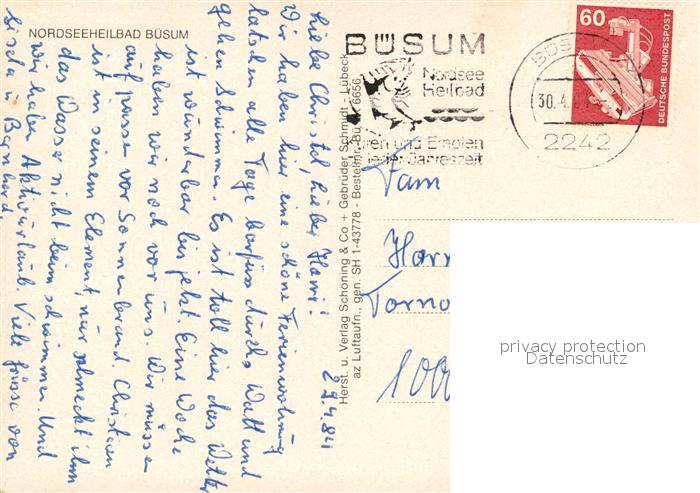 NORDSEEHEILBAD BÜSUM
29.4.84
Liebe Christel, lieber Hanni!
Wir haben hier eine schöne Ferienwohnung
latschen alle Tage barfuss durchs Watt und
gehen Schwimmen. Es ist toll hier das Wetter
ist wunderbar bis jetzt. Eine Woche
haben wir noch vor uns. Wir müssen
aufpassen vor Sonnenbrand. Christian
ist in seinem Element, nur schmeckt ihm
das Wasser nicht beim schwimmen. Und
wir haben Aktivurlaub. Viele Grüsse von
Gisela u Bernhard.
Herst. u. Verlag Schöning & Co + Gebrüder Schmidt - Lübeck
az Luftaufn., gen. SH 1-43778 - Bestellnr. Bü 6656
BÜSUM
Nordsee
Heilbad
uren und Erholen
jeder Jahreszeit
BÜS
30.4.84
2242
60
DEUTSCHE BUNDESPOST
Fam
Harr
Torno
1000
privacy protection
Datenschutz